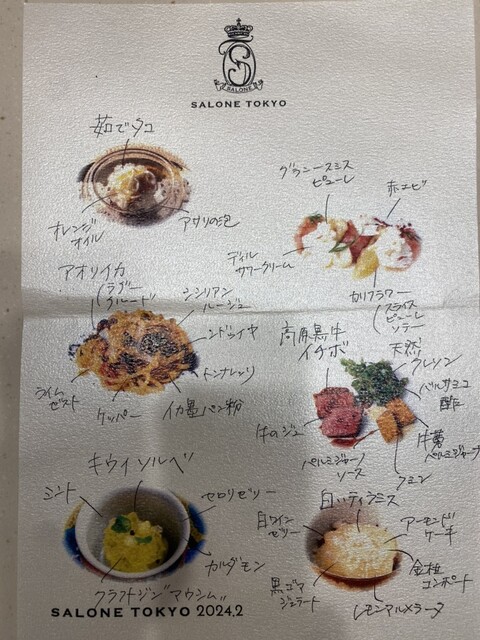 SALONE
SALONE TOKYO
茹でタコ
オレンジ
オイル
アサリの泡
グラニースミス
ピューレ
赤エビ
ディル
サワークリーム
カリフラワー
スライス
ピューレ
ソテー
アオリイカ
ラグー
クルード
シシリアン
ルージュ
ンドゥイヤ
トンナレッリ
イカ墨パン粉
ケッパー
ライム
ゼスト
高原黒牛
イチボ
天然
クレソン
バルサミコ
酢
牛のジュ
パルミジャーノ
ソース
クミン
パルミジャーナ
キウイソルベ
ミント
セロリゼリー
カルダモン
クラフトジン
白いティラミス
白ワイン
ゼリー
アーモンド
ケーキ
金柑
コンポート
ジェラート
レモンアルメラータ
SALONE TOKYO 2024.2